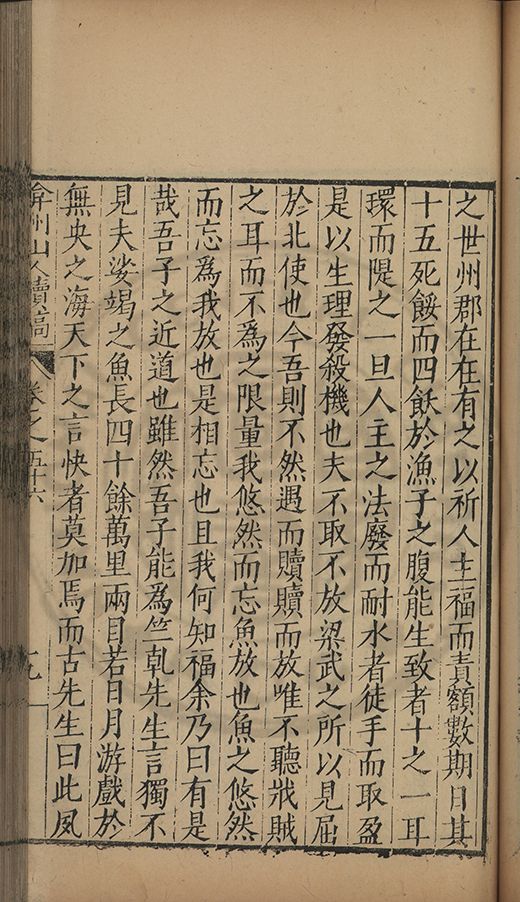 之世州郡在在有之以祈人主福而責額數期日其
十五死餒而四飫於漁子之腹能生致者十之一耳
環而隄之一旦人主之法廢而耐水者徒手而取盈
是以生理發殺機也夫不取不放梁武之所以見屈
於北使也今吾則不然遇而贖贖而放唯不聽戕賊
之耳而不為之限量我悠然而忘魚放也魚之悠然
而忘為我放也是相忘也且我何知福余乃曰有是
哉吾子之近道也雖然吾子能為竺乹先生言獨不
見夫娑竭之魚長四十餘萬里兩目若日月游戲於
無央之海天下之言快者莫加焉而古先生曰此夙
弇州山人續稿 卷之五十六 九